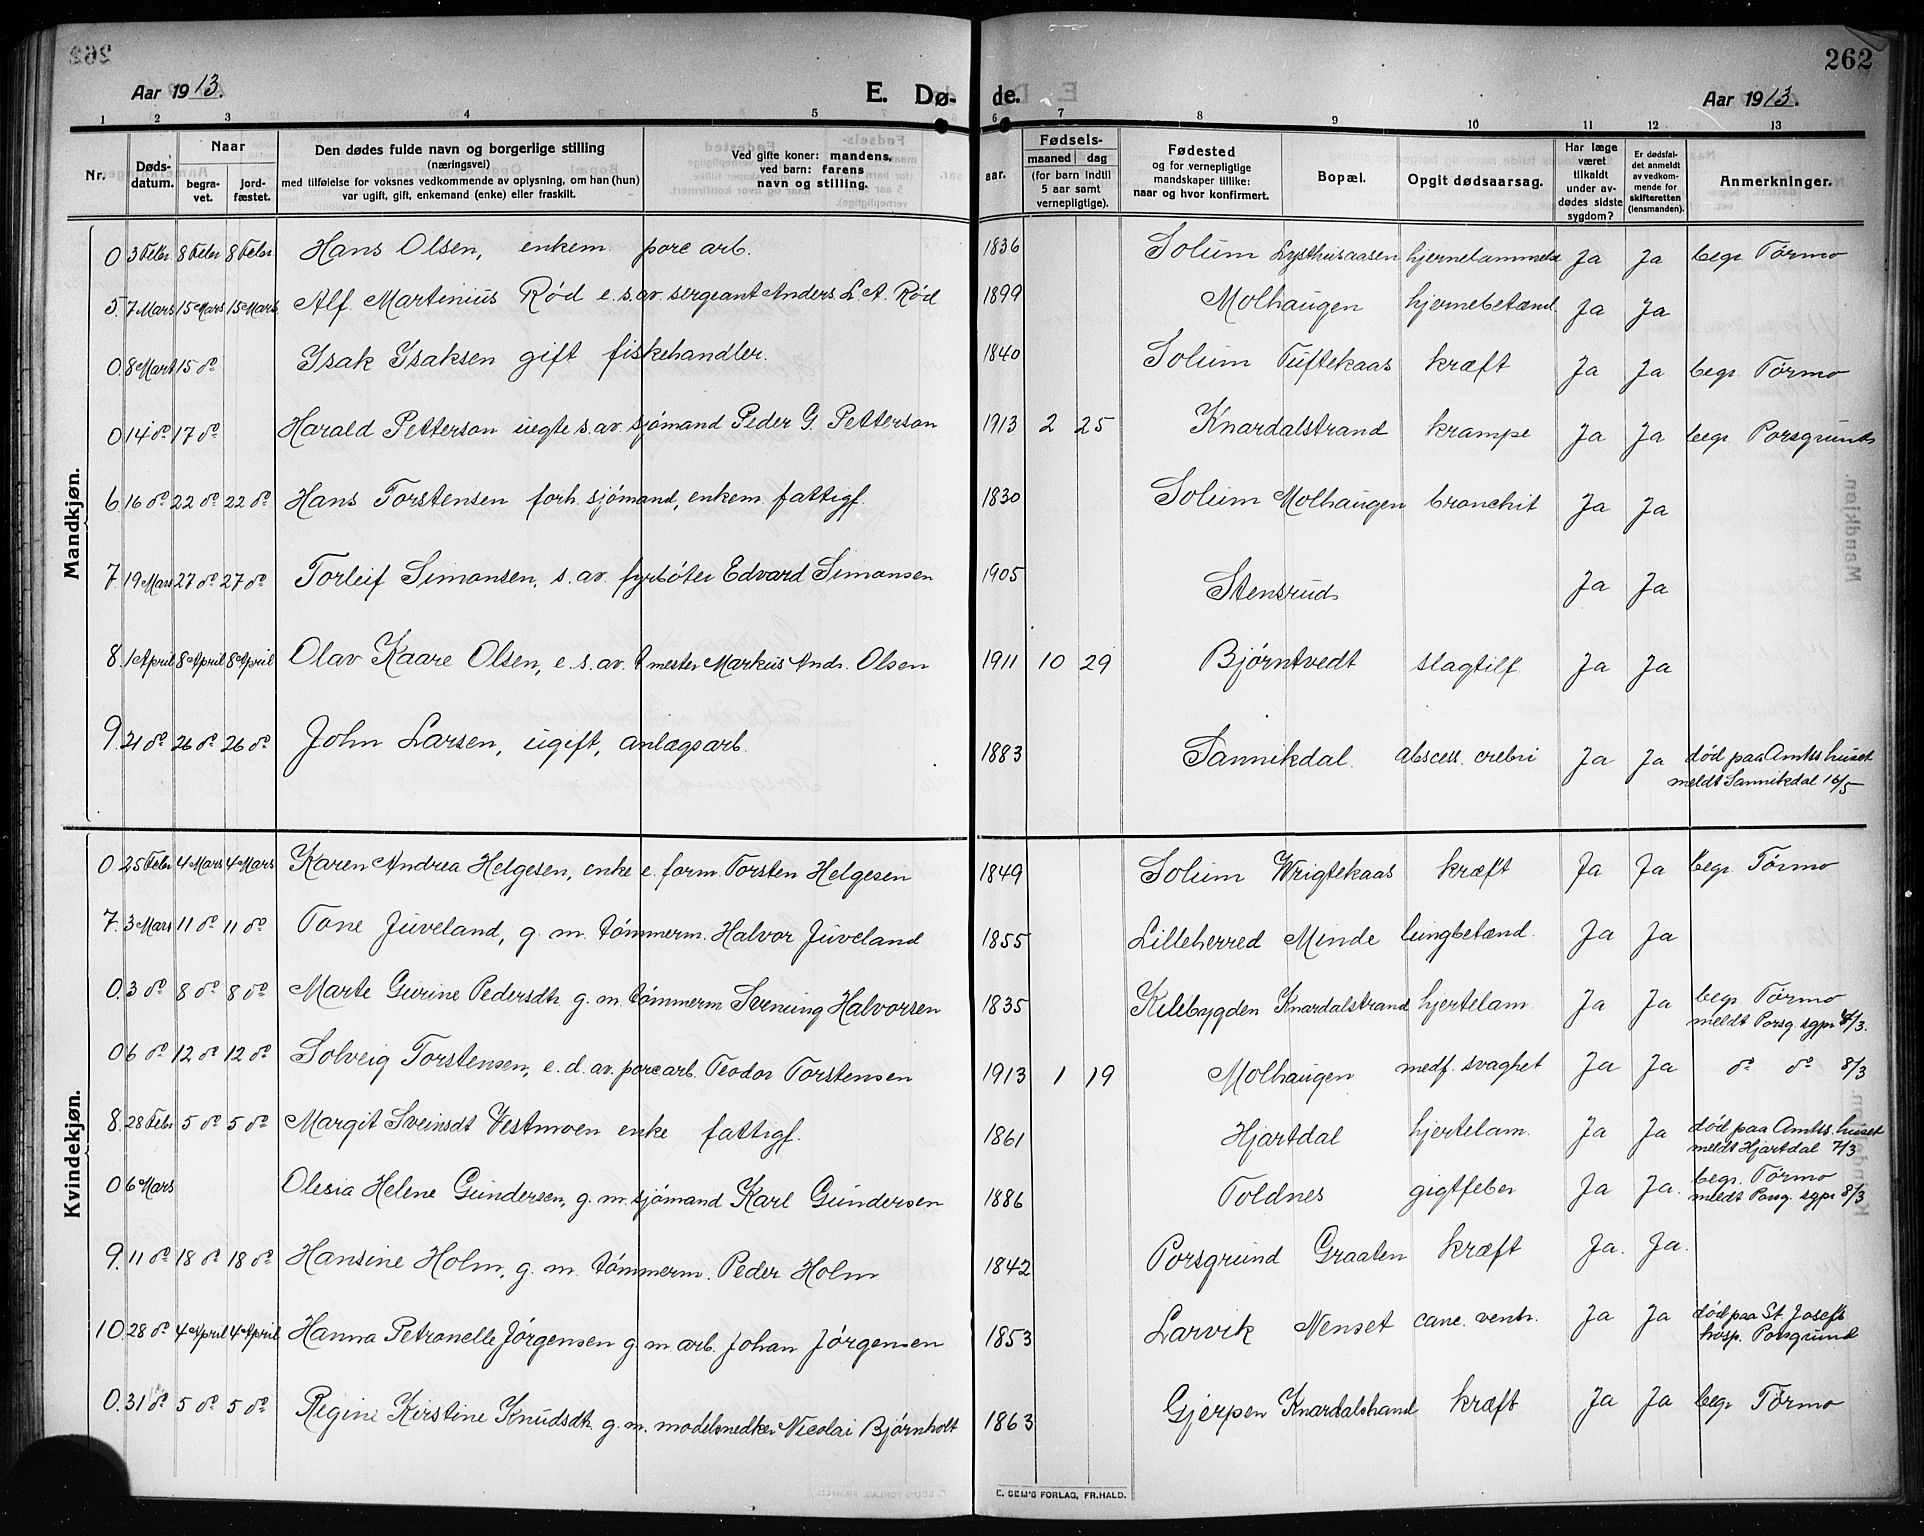 262
Aar 1913. E. Døde. Aar 1913.
1 2 3 4 5 6 7 8 9 10 11 12 13
Nr. Dødsdatum. Naar begravet. jordfæstet. Den dødes fulde navn og borgerlige stilling (næringsvei) med tilføielse for voksnes vedkommende av oplysning, om han (hun) var ugift, gift, enkemand (enke) eller fraskilt. Ved gifte koner: mandens, ved barn: farens navn og stilling. aar. Fødsels- maaned dag (for barn indtil 5 aar samt vernepligtige). Fødested og for vernepligtige mandskaper tillike: naar og hvor konfirmert. Bopæl. Opgit dødsaarsag. Har læge været tilkaldt under avdødes sidste sygdom? Er dødsfaldet anmeldt av vedkommende for skifteretten (lensmanden). Anmerkninger.
Mandkjøn.
0 3 Febr 8 Febr 8 Febr Hans Olsen, enkem porc arb. 1836 Solum Lysthusaasen hjernelammelse Ja Ja begr Tørmo
5. 7 Mars 15 Mars 15 Mars Alf Martinius Rød e. s. av sergeant Anders L. A. Rød 1899 Molhaugen hjernebetænd. Ja Ja
0. 8 Mart 15 do Isak Isaksen gift fiskehandler. 1840 Solum Tuftekaas kræft Ja Ja begr. Tørmo
0 14 do 17 do Harald Petterson uegte s. av sjømand Peder G. Petterson 1913 2 25 Knardalstrand krampe Ja Ja begr Porsgrund
6. 16 do 22 do 22 do Hans Torstensen forh. sjømand, enkem. fattigf. 1830 Solum Molhaugen bronchit Ja Ja
7. 19 Mars 27 do 27 do Torleif Simonsen, s. av. fyrbøter Edvard Simonsen 1905 Stensrud Ja Ja
8. 1 April 8 April 8 April Olav Kaare Olsen, e. s. av. mester Markus Andr. Olsen 1911 10 29 Bjørntvedt slagtilf. Ja Ja
9. 21 do 26 do 26 do John Larsen, ugift, anlægsarb. 1883 Sannikdal. abscess. crebri Ja Ja død paa Amtss huset
meldt Sannikdal 16/5
Kvindekjøn.
0 25 Febr 4 Mars 4 Mars Karen Andrea Helgesen, enke e. form. Torsten Helgesen 1849 Solum Wrigtekaas kræft Ja Ja begr Tørmo
7. 3 Mars 11 do 11 do Tone Juveland, g. m. tømmerm. Halvor Juveland 1855 Lilleherred Minde lungbetænd. Ja Ja
0. 3 do 8 do 8 do Marte Gurine Pedersdtr g. m. tømmerm Svenung Halvorsen 1835 Kilebygden Knardalstrand hjertelam. Ja Ja begr Tørmo
meldt Porsg. sgpr 4/3.
0 6 do 12 do 12 do Solveig Torstensen, e. d. av. porc arb. Teodor Torstensen 1913 1 19 Molhaugen medf. svaghet Ja Ja do do 8/3
8. 28 Febr 5 do 5 do Margit Sveinsdt Vestmoen enke fattigf. 1861 Hjartdal hjertelam. Ja Ja død paa Amtss. huset
meldt Hjartdal 7/3
0 6 Mars Olesia Helene Gundersen, g. m. sjømand Karl Gundersen 1886 Toldnes gigtfeber Ja Ja. begr. Tørmo
meldt Porsg. sgpr 8/3
9. 11 do 18 do 18 do Hansine Holm, g. m. tømmerm. Peder Holm 1842 Porsgrund Graaten kræft Ja. Ja.
10. 28 do 4 April 4 April Hanna Petronelle Jørgensen g. m. arb. Johan Jørgensen 1853 Larvik Nenset canc. ventr. Ja Ja død paa St. Josefs
hosp. Porsgrund
0. 31 do 5 do 5 do Regine Kirstine Knudsdtr g. m. modelsnedker Nicolai Bjørnholt 1863 Gjerpen Knardalstrand kræft Ja Ja begr Tørmo
E. SEM'S FORLAG, FR.HALD.